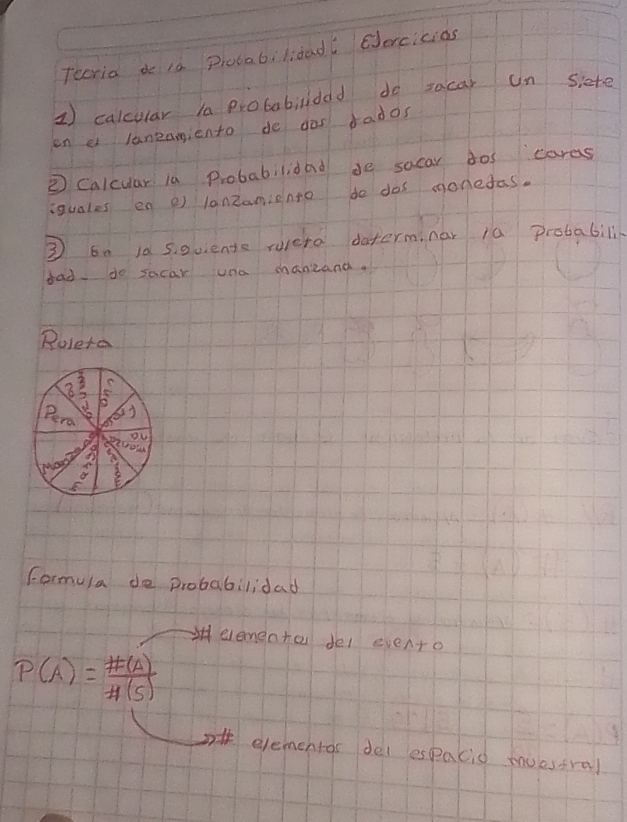 Teoria de la Probabilidad: Ejercicios
1) calcular la Probabilidad de sacar un siete
en el lanzamiento de dos dados
2) Calcular la Probabilidad de sacar dos caras
iguales en el lanzamiento de dos monedas.
3) En la siguiente ruleta determinar la Probabili-
dad de sacar una manzana.
Ruleta
Pera
Formula de Probabilidad
# elementos del evento
P(A) = #(A)
#(S)
# elementos del espacio muestral